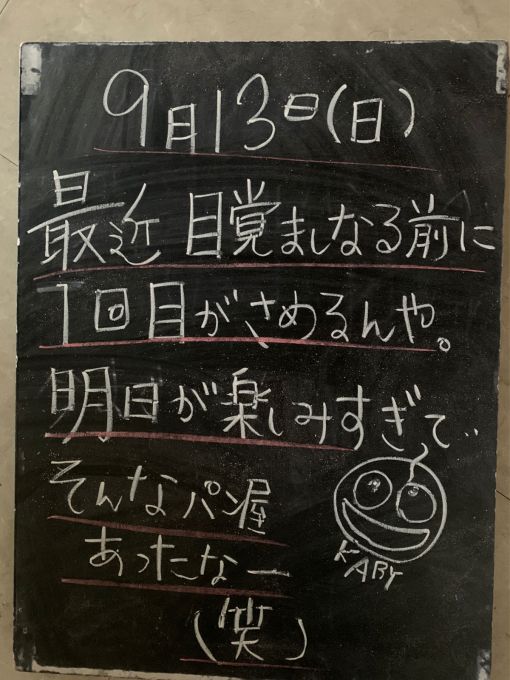 9月13日(日)
最近 目覚ましなる前に
1回目がさめるんや。
明日が楽しみすぎて..
そんなパン屋
あったなー
(笑)
KABY